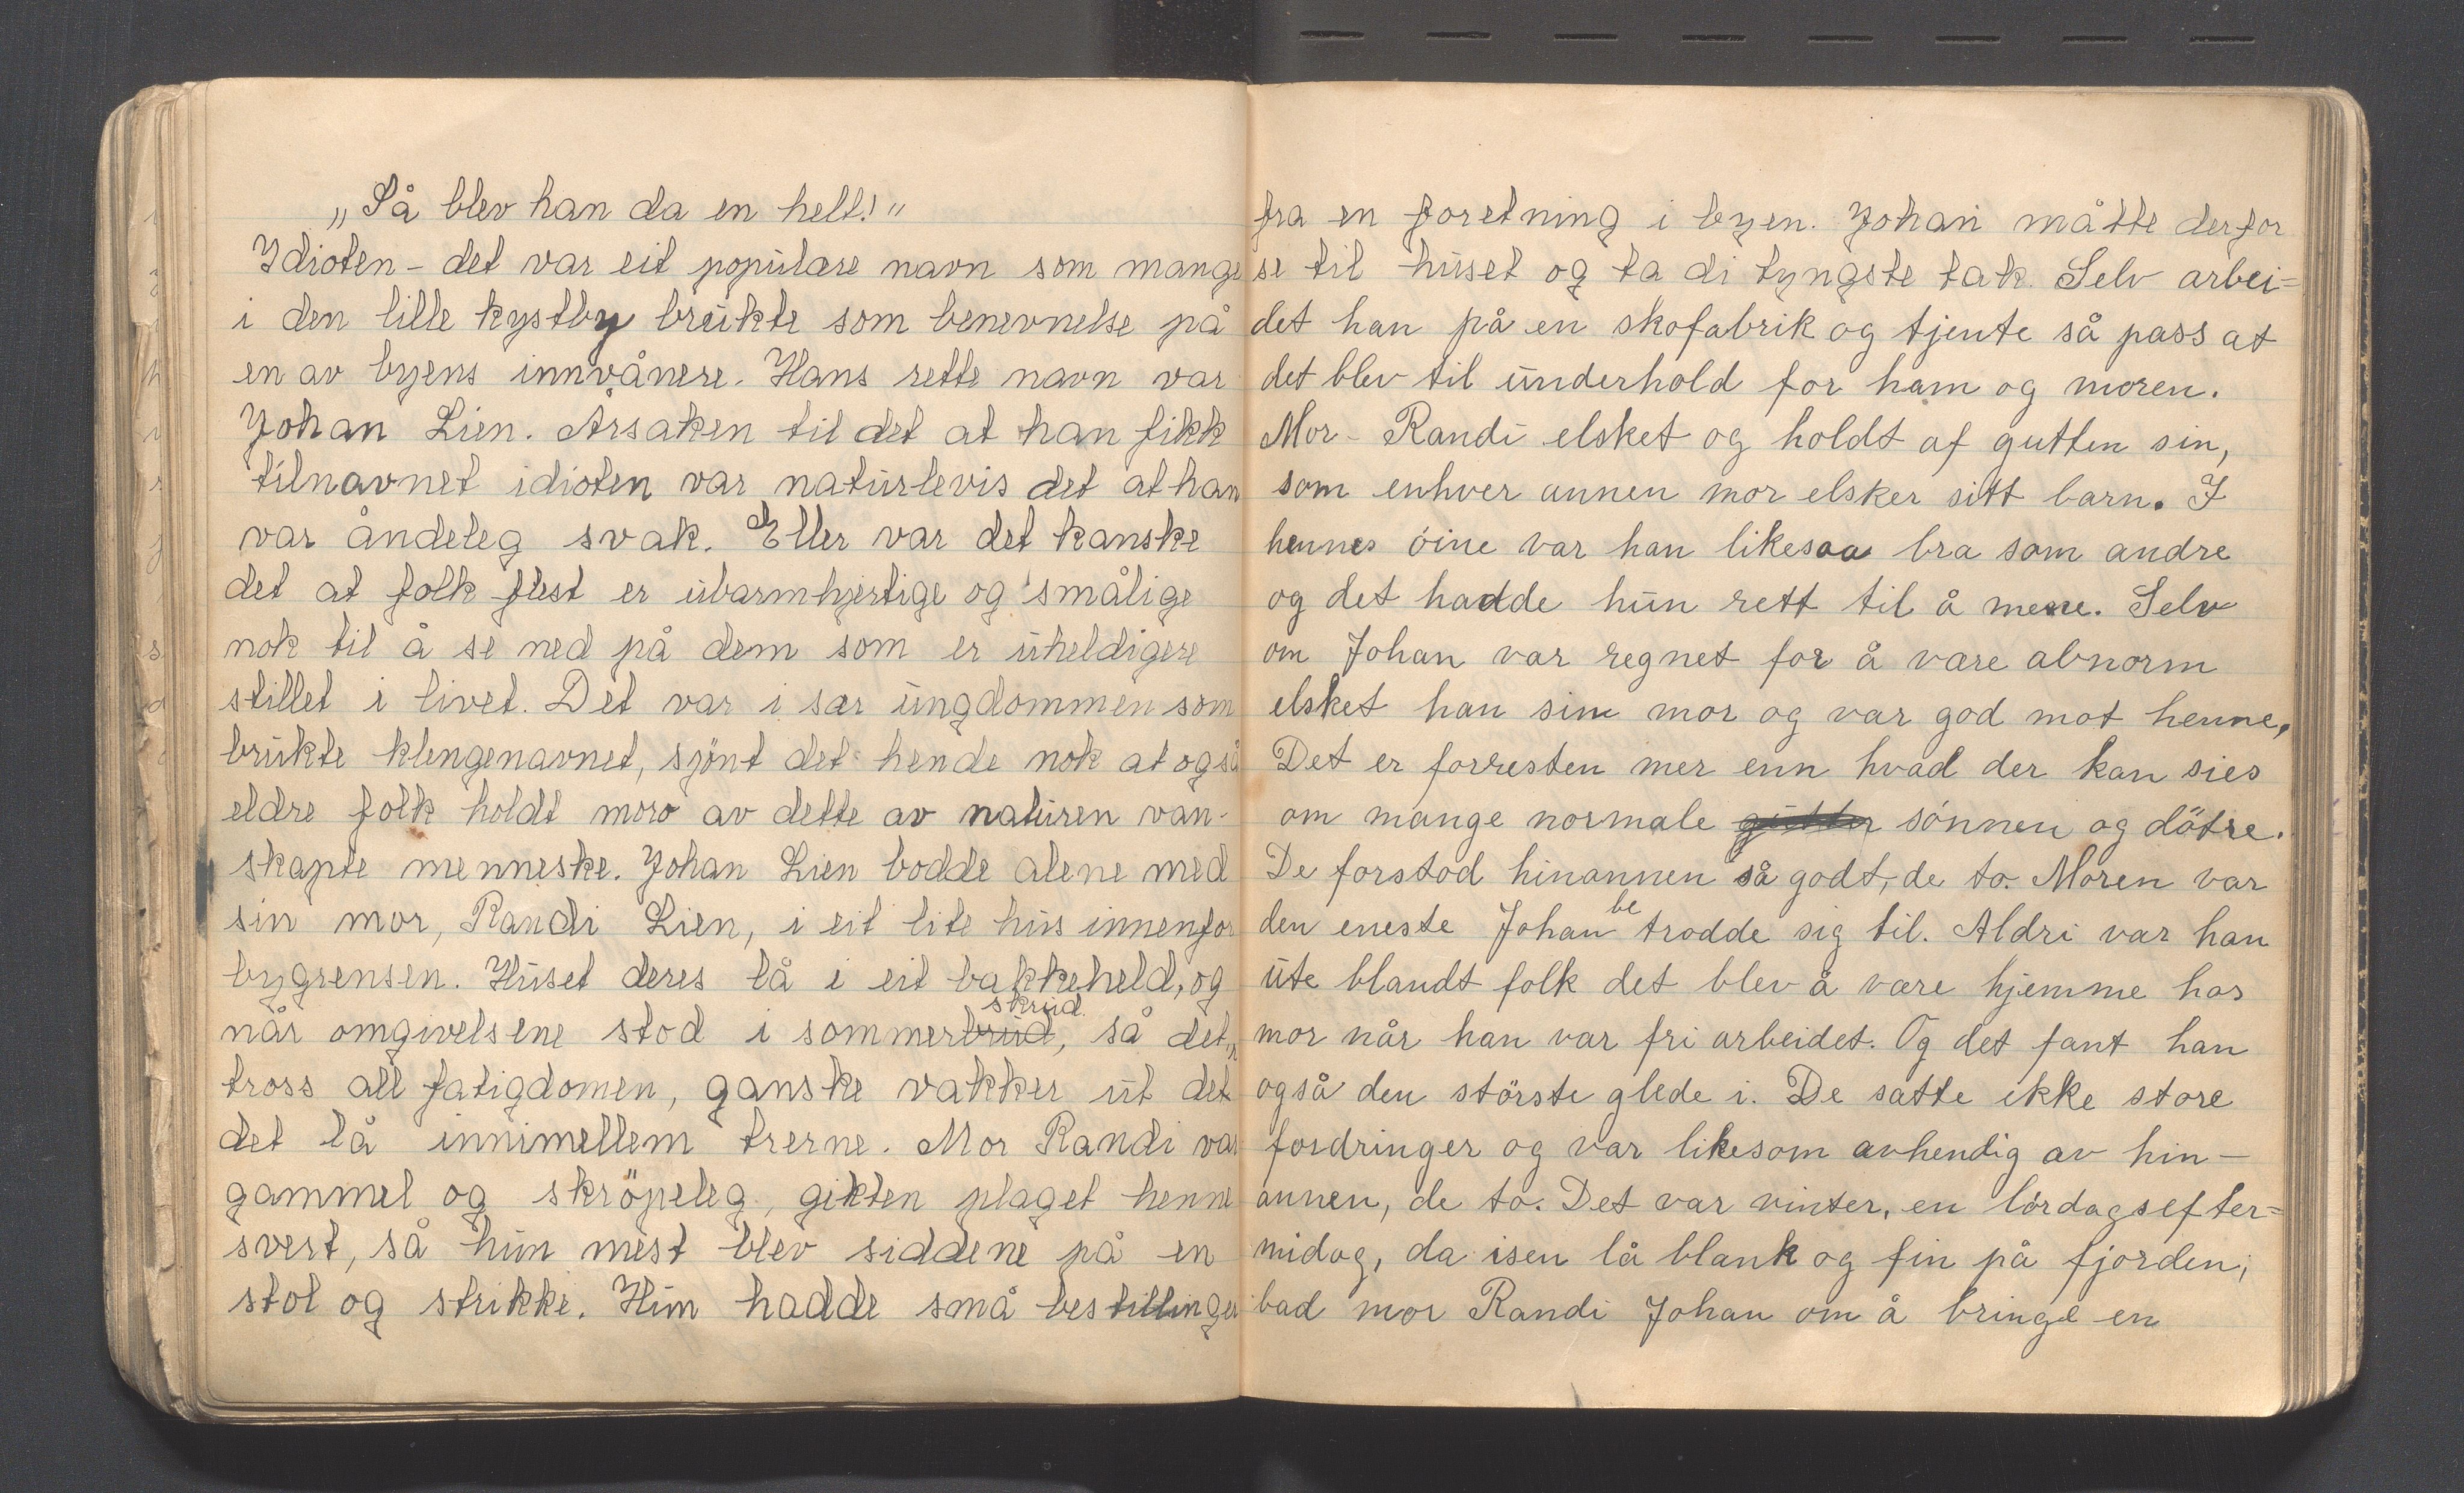 „Så blev han da en helt!"
Idioten - det var eit populære navn som mange
i den lille kystby brukte som benevnelse på
en av byens innvånere. Hans rette navn var
Johan Lien. Årsaken til det at han fikk
tilnavnet idioten var naturlevis det at han
var åndeleg svak. Eller var det kanske
det at folk flest er ubarmhjertige og smålige
nok til å se ned på dem som er uheldigere
stillet i livet. Det var i sær ungdommen som
brukte klengenavnet, sjönt det hende nok at også
eldre folk holdt moro av dette av naturen van-
skapte menneske. Johan Lien bodde alene med
sin mor, Randi Lien, i eit lite hus innenfor
bygrensen. Huset deres lå i eit bakkeheld, og
skrud.
når omgivelsene stod i sommerbrud, så det,
tross all fatigdomen, ganske vakker ut det
det lå innimellem trerne. Mor Randi var
gammel og skröpeleg, gikten plaget henne
svert, så hun mest blev siddene på en
stol og strikke. Hun hadde små bestillinger
fra en foretning i byen. Johan måtte derfor
se til huset og ta di tyngste tak. Selv arbei=
det han på en skofabrik og tjente så pass at
det blev til underhold for ham og moren.
Mor - Randi elsket og holdt af gutten sin,
som enhver annen mor elsker sitt barn. I
hennes óine var han likesaa bra som andre
og det hadde hun rett til å mene. Selv
om Johan var regnet for å være abnorm
elsket han sin mor og var god mot henne,
Det er forresten mer enn hvad der kan sies
om mange normale gutter sónnen og dötre.
De forstod hinannen så godt, de to. Moren var
be
den eneste Johan trodde sig til. Aldri var han
ute blandt folk det blev å være hjemme hos
mor når han var fri arbeidet. Og det fant han
også den störste glede i. De satte ikke store
fordringer og var likesom avhendig av hin-
annen, de to. Det var vinter, en lórdagsefter=
midag, da isen lå blank og fin på fjorden,
bad mor Randi Johan om å bringe en